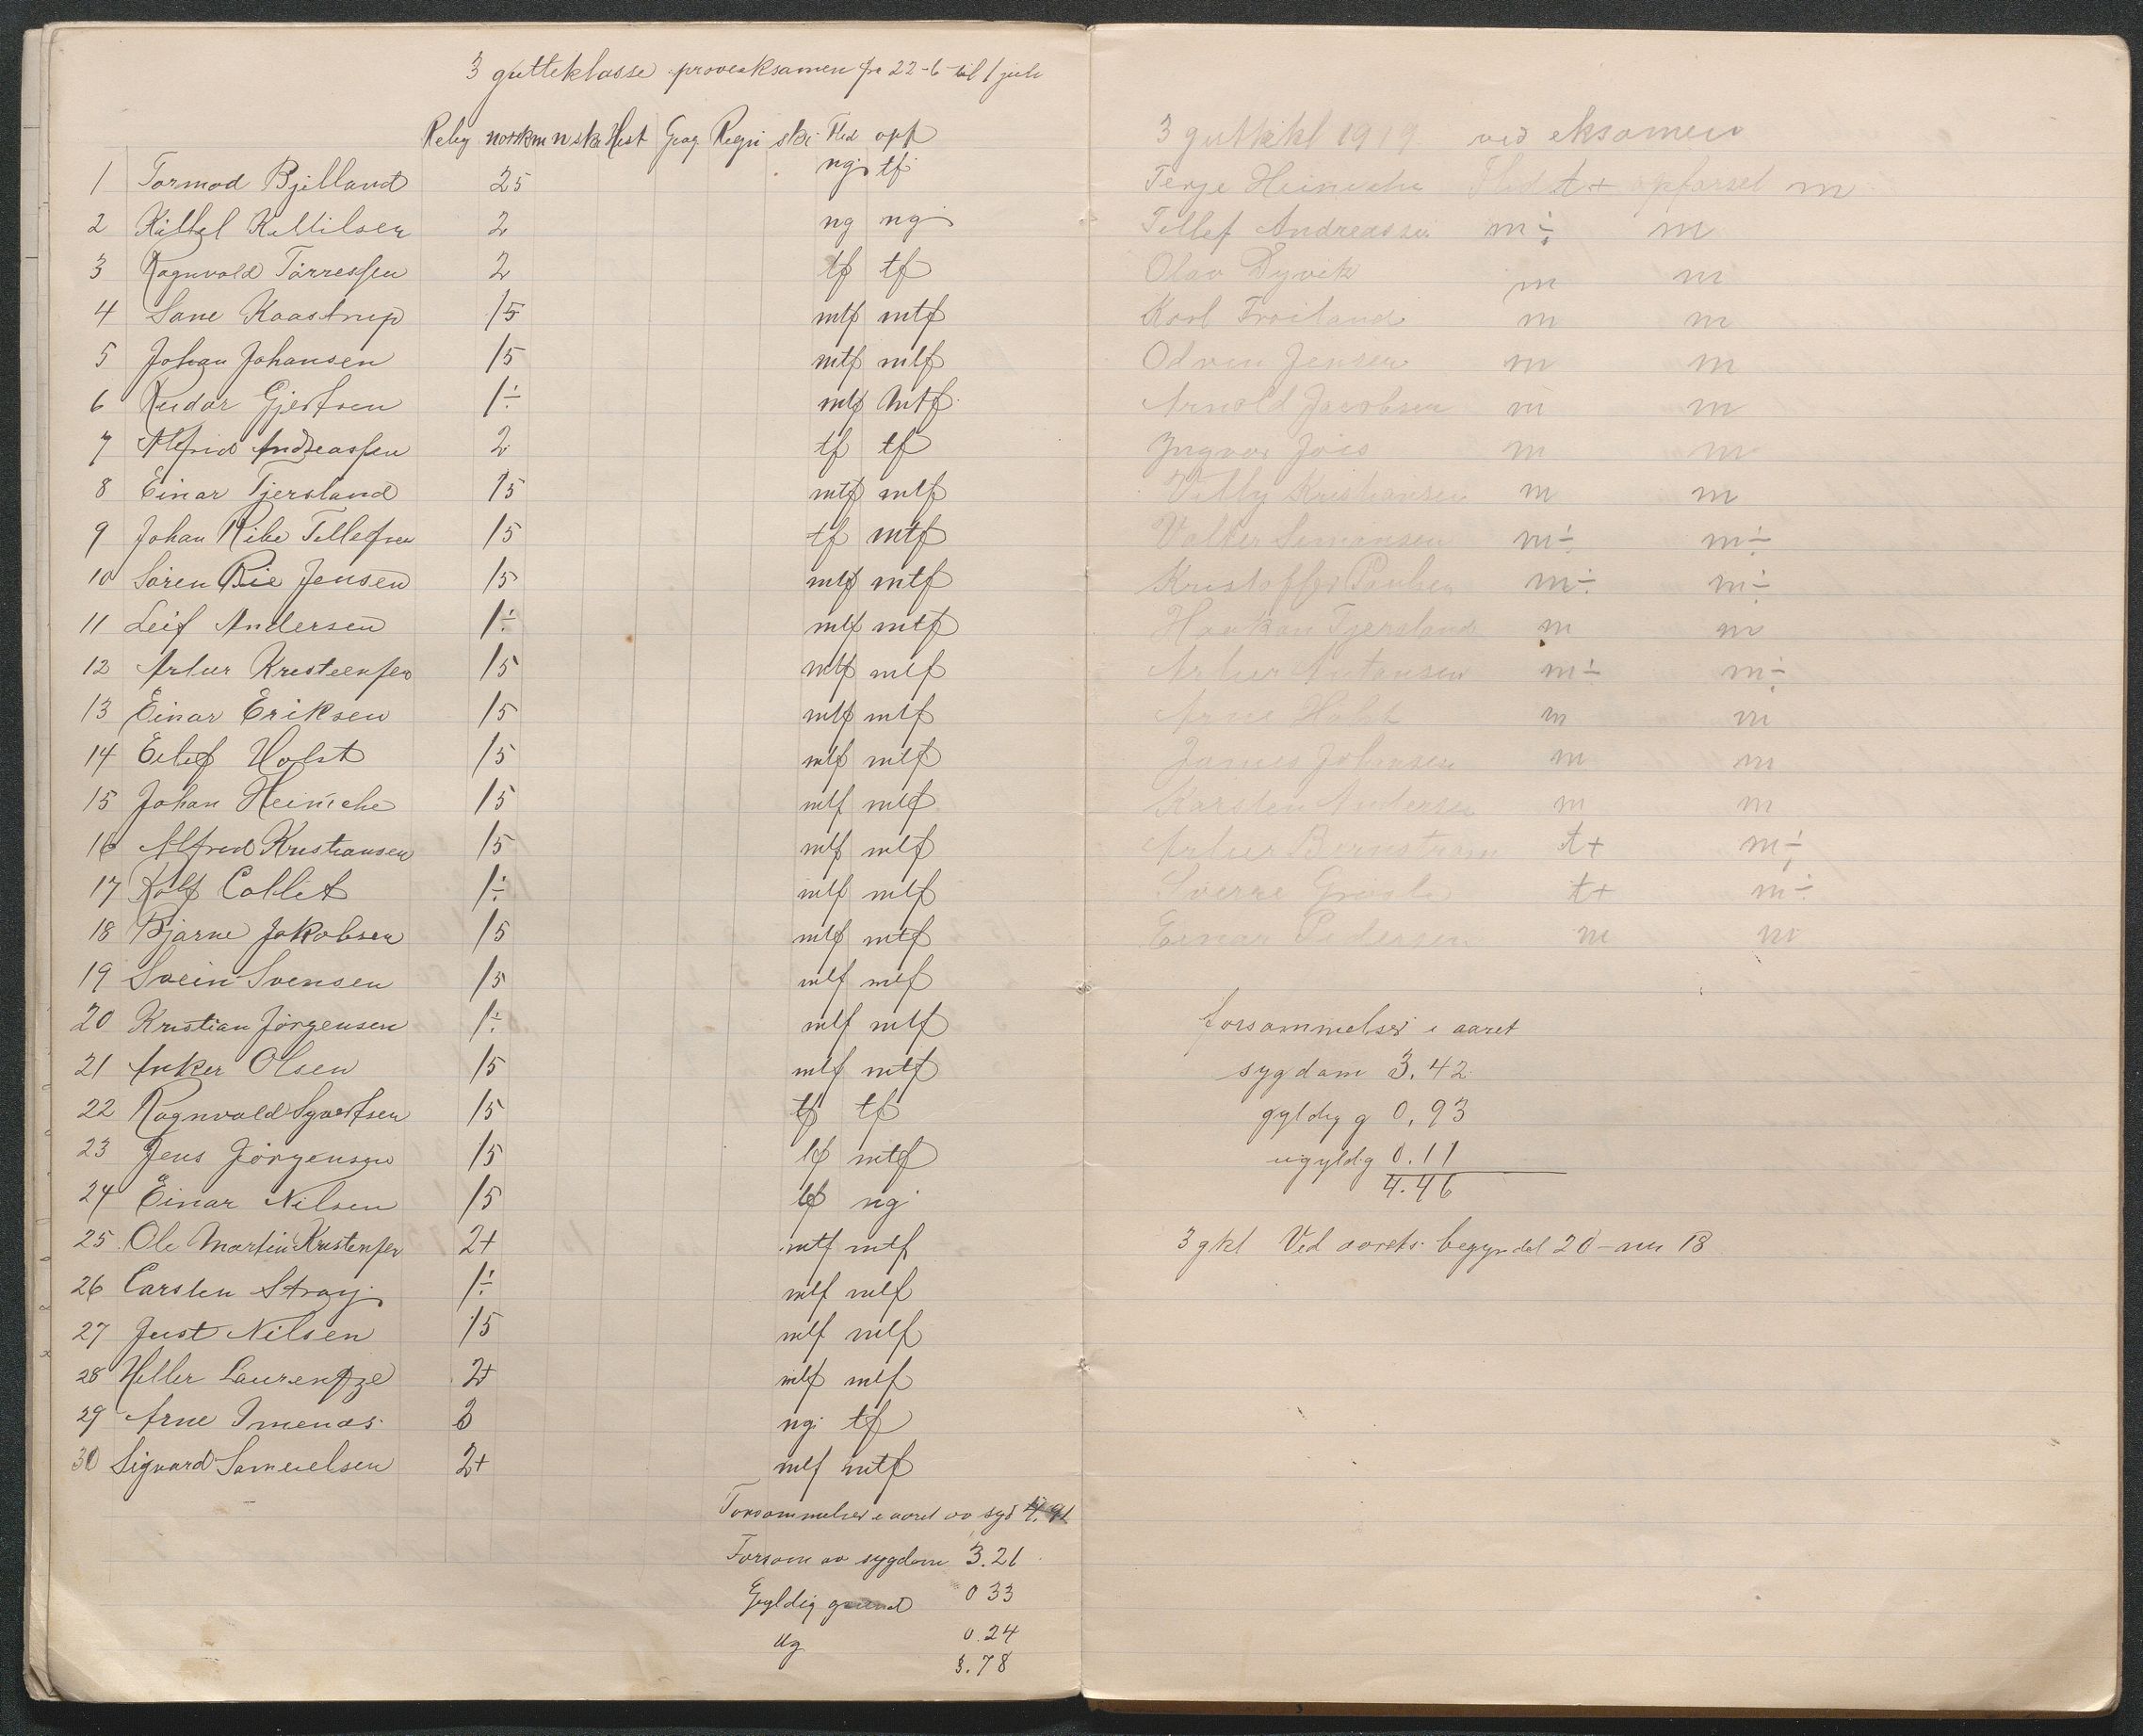 3 gutteklasse prøveeksamen fra 22-6 til 1 juli
Relig norskm n skr Hist Geog Regn skr Flid opf
1 Tormod Bjelland 25 ngi tf
2 Kittel Kittilsen 2 ng ngi
3 Ragnvald Tørressen 2 tf tf
4 Kaastrup 15 mtf mtf
5 Johan Johansen 15 mtf mtf
6 Reidar Gjertsen 1÷ mtf mtf
7 Alfrid Andreassen 2 tf tf
8 Einar Tjersland 15 mtf mtf
9 Johan Ribe Tellefsen 15 tf mtf
10 Søren Rie Jensen 15 mtf mtf
11 Leif Andersen 1÷ mtf mtf
12 Artur Kristensen 15 mtf mtf
13 Einar Eriksen 15 mtf mtf
14 Eilef Holst 15 mtf mtf
15 Johan Heinche 15 mtf mtf
16 Alfred Kristiansen 15 mtf mtf
17 Rolf Collet 1÷ mtf mtf
18 Bjarne Jakobsen 15 mtf mtf
19 Svein Svensen 15 mtf mtf
20 Kristian Jørgensen 1÷ mtf mtf
21 Anker Olsen 15 mtf mtf
22 Ragnvald Syvertsen 15 tf tf
23 Jens Jørgensen 15 tf mtf
24 Einar Nilsen 15 tf ng
25 Ole Martin Kristensen 2+ mtf mtf
26 Carsten Stray 1÷ mtf mtf
27 Just Nilsen 15 mtf mtf
28 Heller Laurentze 2+ mtf mtf
29 Arne Imenes 3 ngi tf
30 Sigvard Samuelsen 2+ mtf mtf
Forsømmelser i aaret av syd 4.91
Forsøm av sygdom 3.21
Gyldig grund 0 33
Ug 0.24
3.78
3 guttekl 1919 ved eksamen
Terje Heinche Flid t+ opførsel m
Tellef Andreassen m÷ m
Olav Dyvik m m
Karl Frøiland m m
Odvin Jensen m m
Arnold Jacobsen m m
Ingvar m m
Villy Kristiansen m m
Valter Simonsen m÷ m÷
Kristoffer Paulsen m÷ m÷
Haakon Tjersland m m
Artur Antonsen m÷ m÷
Arne Holst m m
James Johansen m m
Karsten Andersen m m
Artur t+ m÷
Sverre t+ m÷
Einar Pedersen m m
forsømmelser i aaret
sygdom 3.42
gyldig g 0.93
ugyldig 0.11
4.46
3 gkl Ved aarets begyndel 20 – nu 18